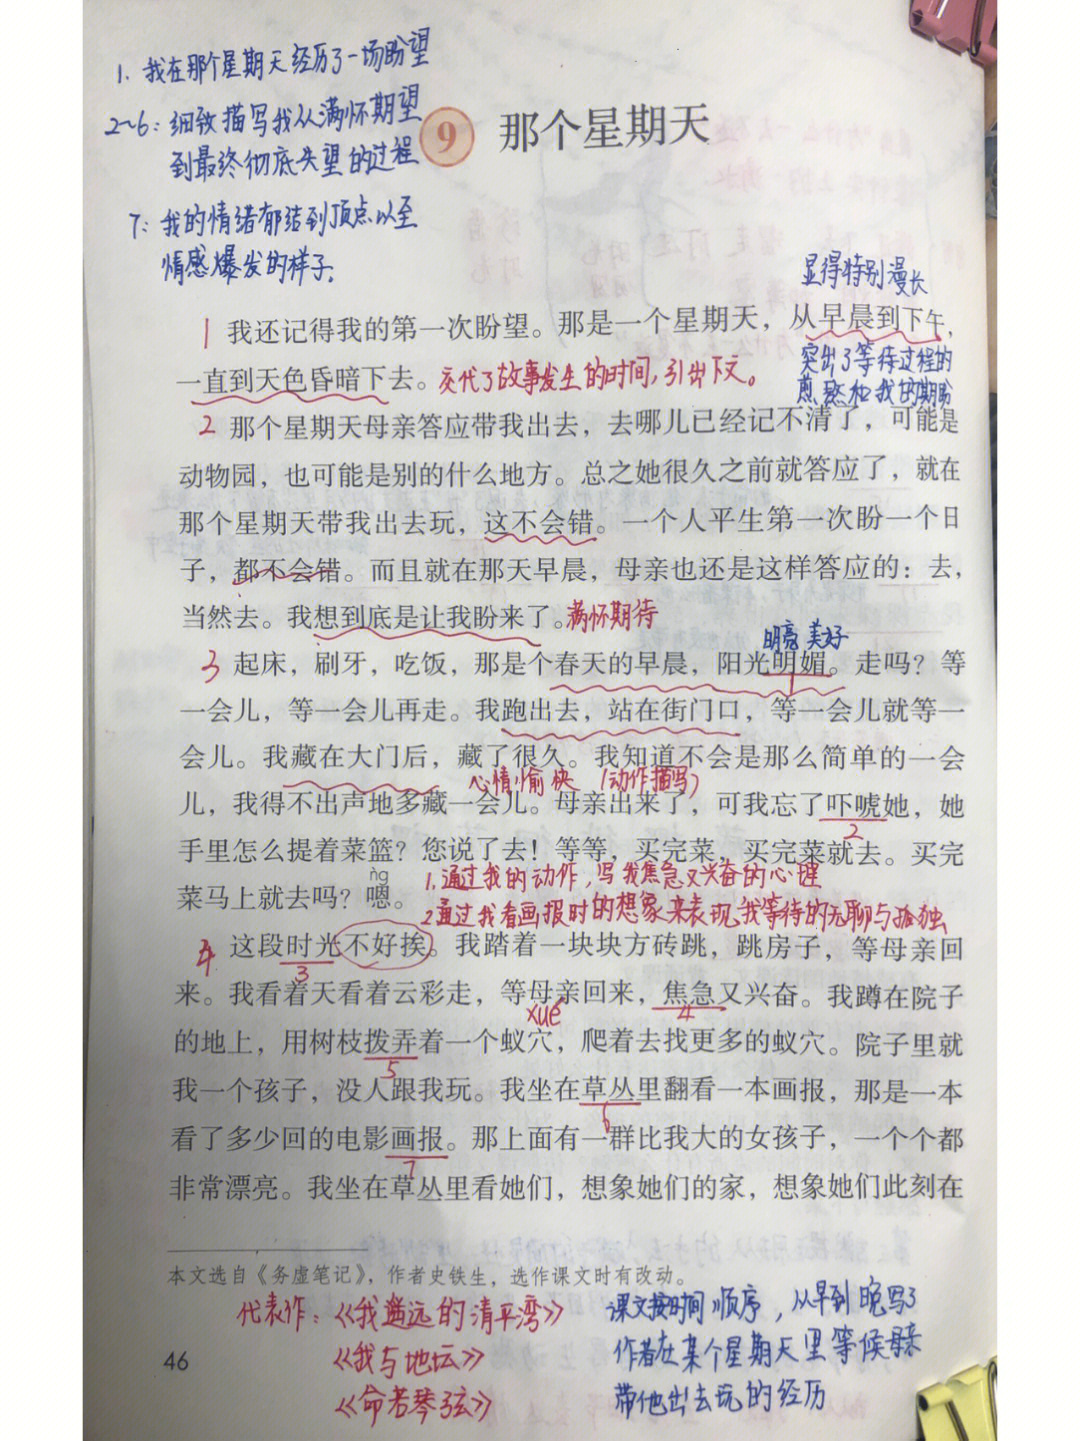 1. 我在那个星期天经历了一场盼望
2~6: 细致描写我从满怀期望
到最终彻底失望的过程
7: 我的情绪郁结到顶点以至
情感爆发的样子.
9 那个星期天
显得特别漫长
1 我还记得我的第一次盼望。那是一个星期天，从早晨到下午，
突出了等待过程的
煎熬和我的期盼
一直到天色昏暗下去。交代了故事发生的时间,引出下文。
2 那个星期天母亲答应带我出去，去哪儿已经记不清了，可能是
动物园，也可能是别的什么地方。总之她很久之前就答应了，就在
那个星期天带我出去玩，这不会错。一个人平生第一次盼一个日
子，都不会错。而且就在那天早晨，母亲也还是这样答应的：去，
当然去。我想到底是让我盼来了。满怀期待
明亮美好
3 起床，刷牙，吃饭，那是个春天的早晨，阳光明媚。走吗？等
1
一会儿，等一会儿再走。我跑出去，站在街门口，等一会儿就等一
会儿。我藏在大门后，藏了很久。我知道不会是那么简单的一会
心情愉快 (动作描写)
儿，我得不出声地多藏一会儿。母亲出来了，可我忘了吓唬她，她
2
手里怎么提着菜篮？您说了去！等等，买完菜，买完菜就去。买完
ǹg
菜马上就去吗？嗯。
1.通过我的动作,写我焦急又兴奋的心理
2通过我看画报时的想象来表现我等待的无聊与孤独
4 这段时光不好挨。我踏着一块块方砖跳，跳房子，等母亲回
3
来。我看着天看着云彩走，等母亲回来，焦急又兴奋。我蹲在院子
xué 4
的地上，用树枝拨弄着一个蚁穴，爬着去找更多的蚁穴。院子里就
5
我一个孩子，没人跟我玩。我坐在草丛里翻看一本画报，那是一本
6
看了多少回的电影画报。那上面有一群比我大的女孩子，一个个都
7
非常漂亮。我坐在草丛里看她们，想象她们的家，想象她们此刻在
本文选自《务虚笔记》，作者史铁生，选作课文时有改动。
代表作：《我遥远的清平湾》
《我与地坛》
《命若琴弦》
课文按时间顺序，从早到晚写了
作者在某个星期天里等候母亲
带他出去玩的经历
46